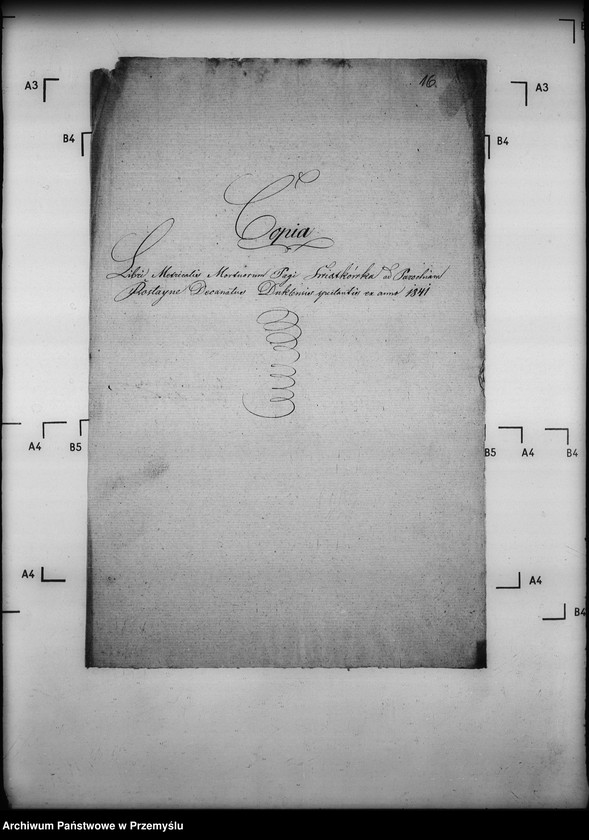 16.
Copia
Libri Metricalis Mortuorum Pagi Świątkówka ad Parochiam
Rostayne Decanatus Duklensis spectantis ex anno 1841
A3
A3
B4
B4
A4
B5
B5
A4
B4
A4
A4
B4
Archiwum Państwowe w Przemyślu